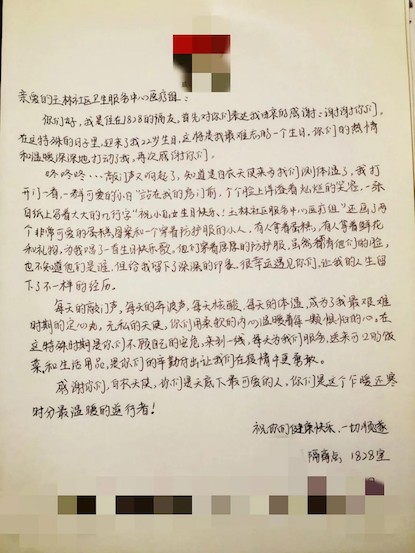 亲爱的玉林社区卫生服务中心医疗组:
你们好,我是住在1828的病友。首先对你们表达我由衷的感谢:谢谢你们。
在这特殊的日子里,迎来了我22岁生日,这将是我最难忘的一个生日,你们的热情
和温暖深深地打动了我,再次感谢你们。
咚咚咚……敲门声又响起了,知道是白衣天使来为我们测体温了,我打
开门一看,一群可爱的小白"站在我的房门前,个个脸上洋溢着灿烂的笑容,一张
白纸上写着大大的几行字"祝小 生日快乐!玉林社区服务中心医疗组"还画了两
个非常可爱的蛋糕图案和一个穿着防护服的小人,有人拿着蛋糕,有人拿着鲜花
和礼物,为我唱了一首生日快乐歌,他们穿着厚厚的防护服,虽然都看不到他们的脸,
也不知道他们是谁,但给我留下了深深的印象。很幸运遇见你们,让我的人生留
下了不一样的经历。
每天的敲门声,每天的奔波声,每天核酸、每天的体温,成为了我最艰难
时期的定心丸,无私的天使,你们用柔软的内心温暖着每一颗惧怕的心。在
这特殊时期是你们不顾自己的安危,来到一线,每天为我们服务,送来可口的饭
菜和生活用品,是你们的辛勤付出让我们在疫情中更勇敢。
感谢你们,白衣天使,你们是天底下最可爱的人,你们是这个乍暖还寒
时分最温暖的逆行者!
祝你们健康快乐、一切顺遂
隔离点 1828室